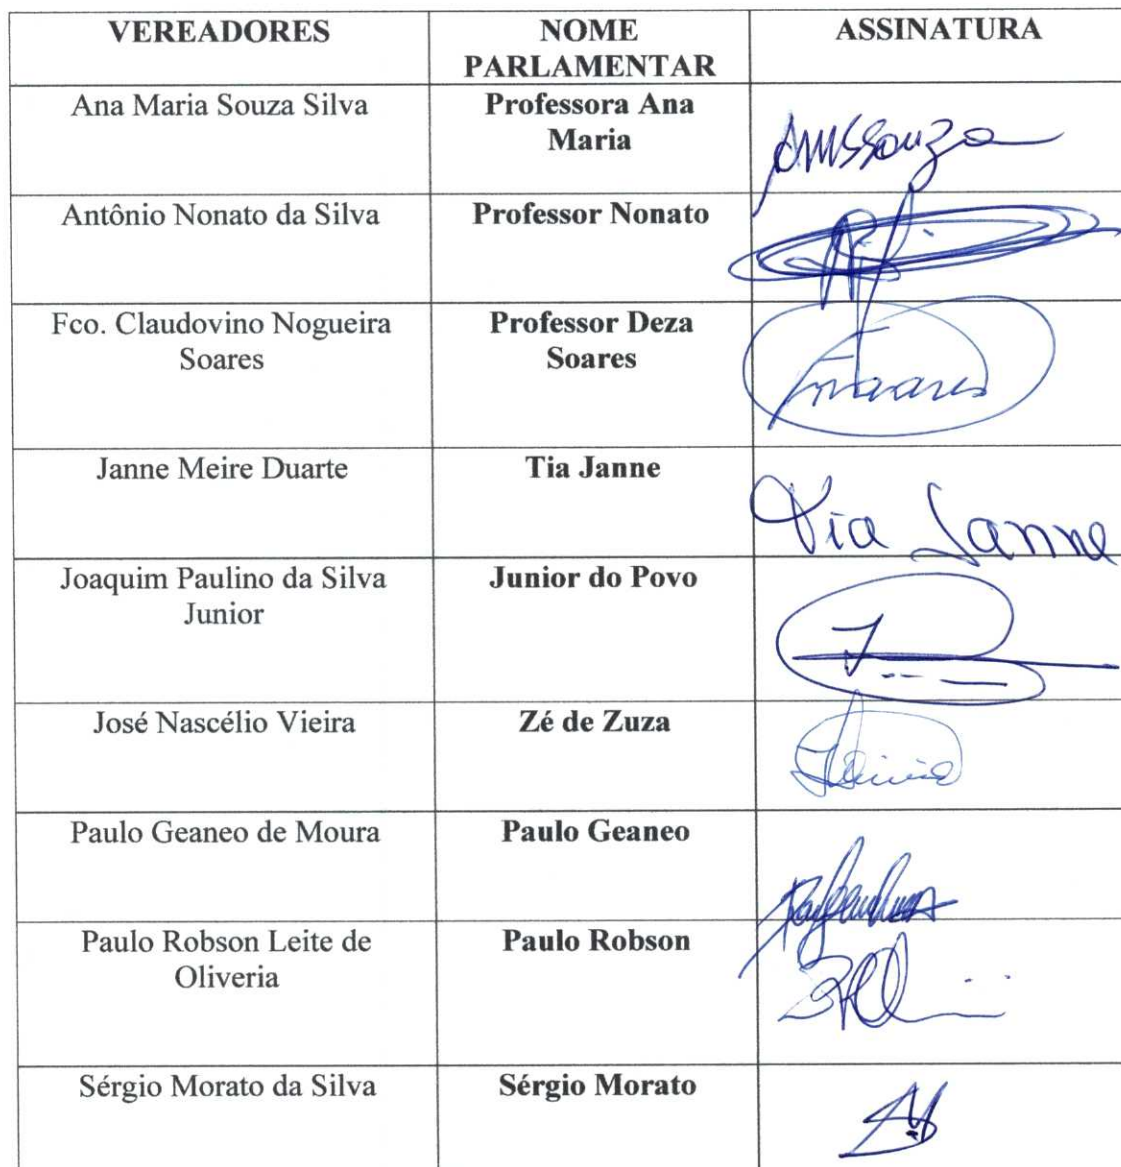 VEREADORES NOME PARLAMENTAR ASSINATURA
Ana Maria Souza Silva Professora Ana Maria AMSSouza
Antônio Nonato da Silva Professor Nonato
Fco. Claudovino Nogueira Soares Professor Deza Soares
Janne Meire Duarte Tia Janne Tia Janne
Joaquim Paulino da Silva Junior Junior do Povo
José Nascélio Vieira Zé de Zuza
Paulo Geaneo de Moura Paulo Geaneo
Paulo Robson Leite de Oliveria Paulo Robson
Sérgio Morato da Silva Sérgio Morato